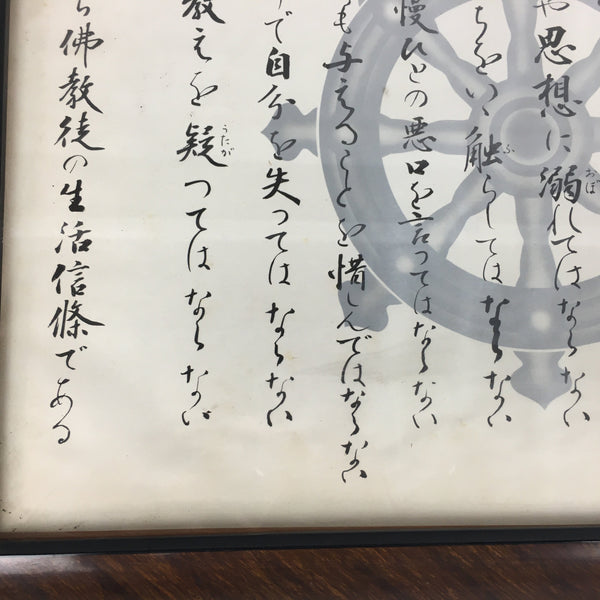 や思想に溺れてはならない
ちをいい触らしてはならない
慢ひとの悪口を言ってはならない
も与えることを惜しんではならない
で自分を失つてはならない
教えを疑つてはならない
佛教徒の生活信條である